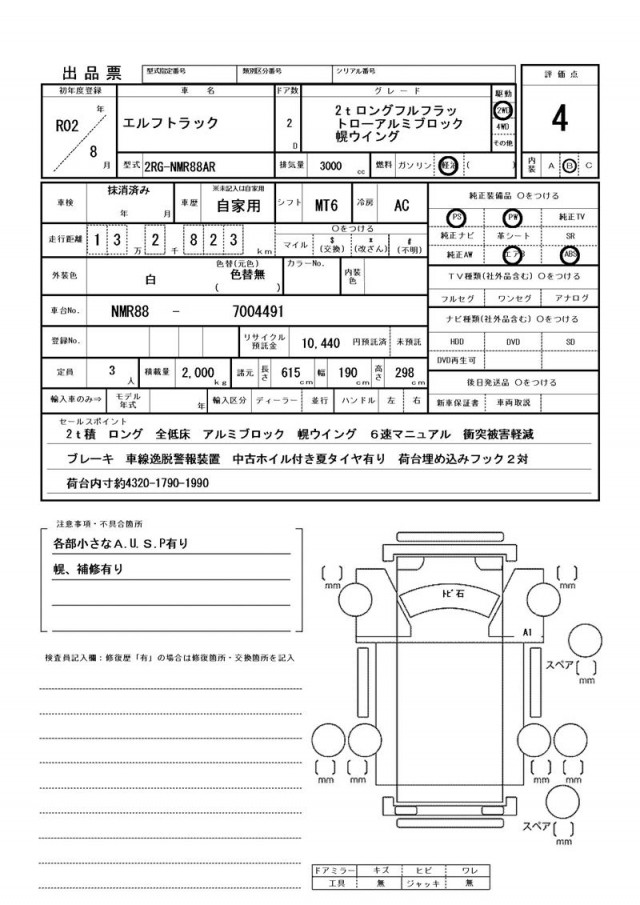 出品票 型式指定番号 類別区分番号 シリアル番号
評価点
4
初年度登録 車名 ドア数 グレード 駆動
R02 年 8 月
エルフトラック
2 D
2tロングフルフラッ
トローアルミブロック
幌ウイング
2WD
4WD
その他
型式 2RG-NMR88AR 排気量 3000 cc 燃料 ガソリン 軽油 ( )
内装 A B C
車検 抹消済み 年 月 車歴 ※未記入は自家用 自家用 シフト MT6 冷房 AC
純正装備品 〇をつける
PS PW 純正TV
純正ナビ 革シート SR
純正AW エアB ABS
走行距離 13万2千823km
〇をつける
マイル $(交換) *(改ざん) #(不明)
外装色 白 色替(元色) 色替無 ( ) カラーNo. 内装色
TV種類(社外品含む) 〇をつける
フルセグ ワンセグ アナログ
車台No. NMR88 - 7004491
ナビ種類(社外品含む) 〇をつける
HDD DVD SD
DVD再生可
登録No. リサイクル預託金 10,440 円預託済 未預託
定員 3 人 積載量 2,000 kg 諸元 長さ 615 cm 幅 190 cm 高さ 298 cm
後日発送品 〇をつける
新車保証書 車両取説
輸入車のみ⇒ モデル年式 年 輸入区分 ディーラー 並行 ハンドル 左 右
セールスポイント
2t積 ロング 全低床 アルミブロック 幌ウイング 6速マニュアル 衝突被害軽減
ブレーキ 車線逸脱警報装置 中古ホイル付き夏タイヤ有り 荷台埋め込みフック2対
荷台内寸約4320-1790-1990
注意事項・不具合箇所
各部小さなA.U.S.P有り
幌、補修有り
検査員記入欄:修復歴「有」の場合は修復箇所・交換箇所を記入
[ ] mm
[ ] mm
ﾄﾋﾞ石
A1
スペア [ ] mm
[ ] mm
[ ] mm
[ ] mm
[ ] mm
スペア [ ] mm
ドアミラー キズ ヒビ ワレ
工具 無 ジャッキ 無